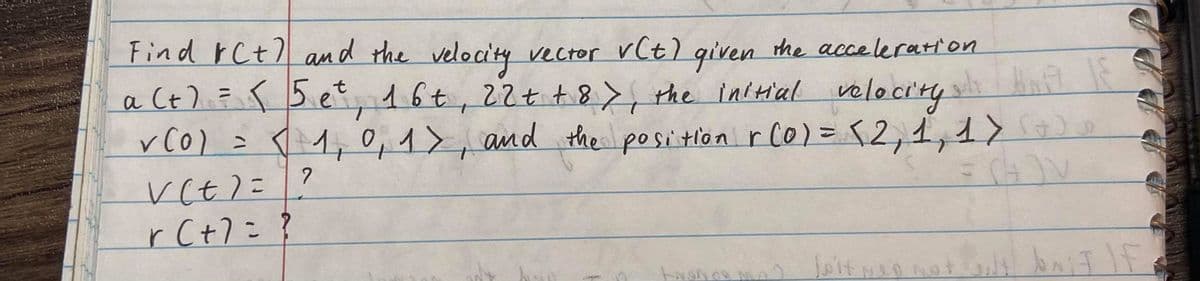 Find r(t) and the velocity vector v(t) given the acceleration
a(t) = < 5e^t, 16t, 22t + 8 >, the initial velocity
v(0) = < 1, 0, 1 >, and the position r(0) = <2, 1, 1>
v(t) = ?
r(t) = ?